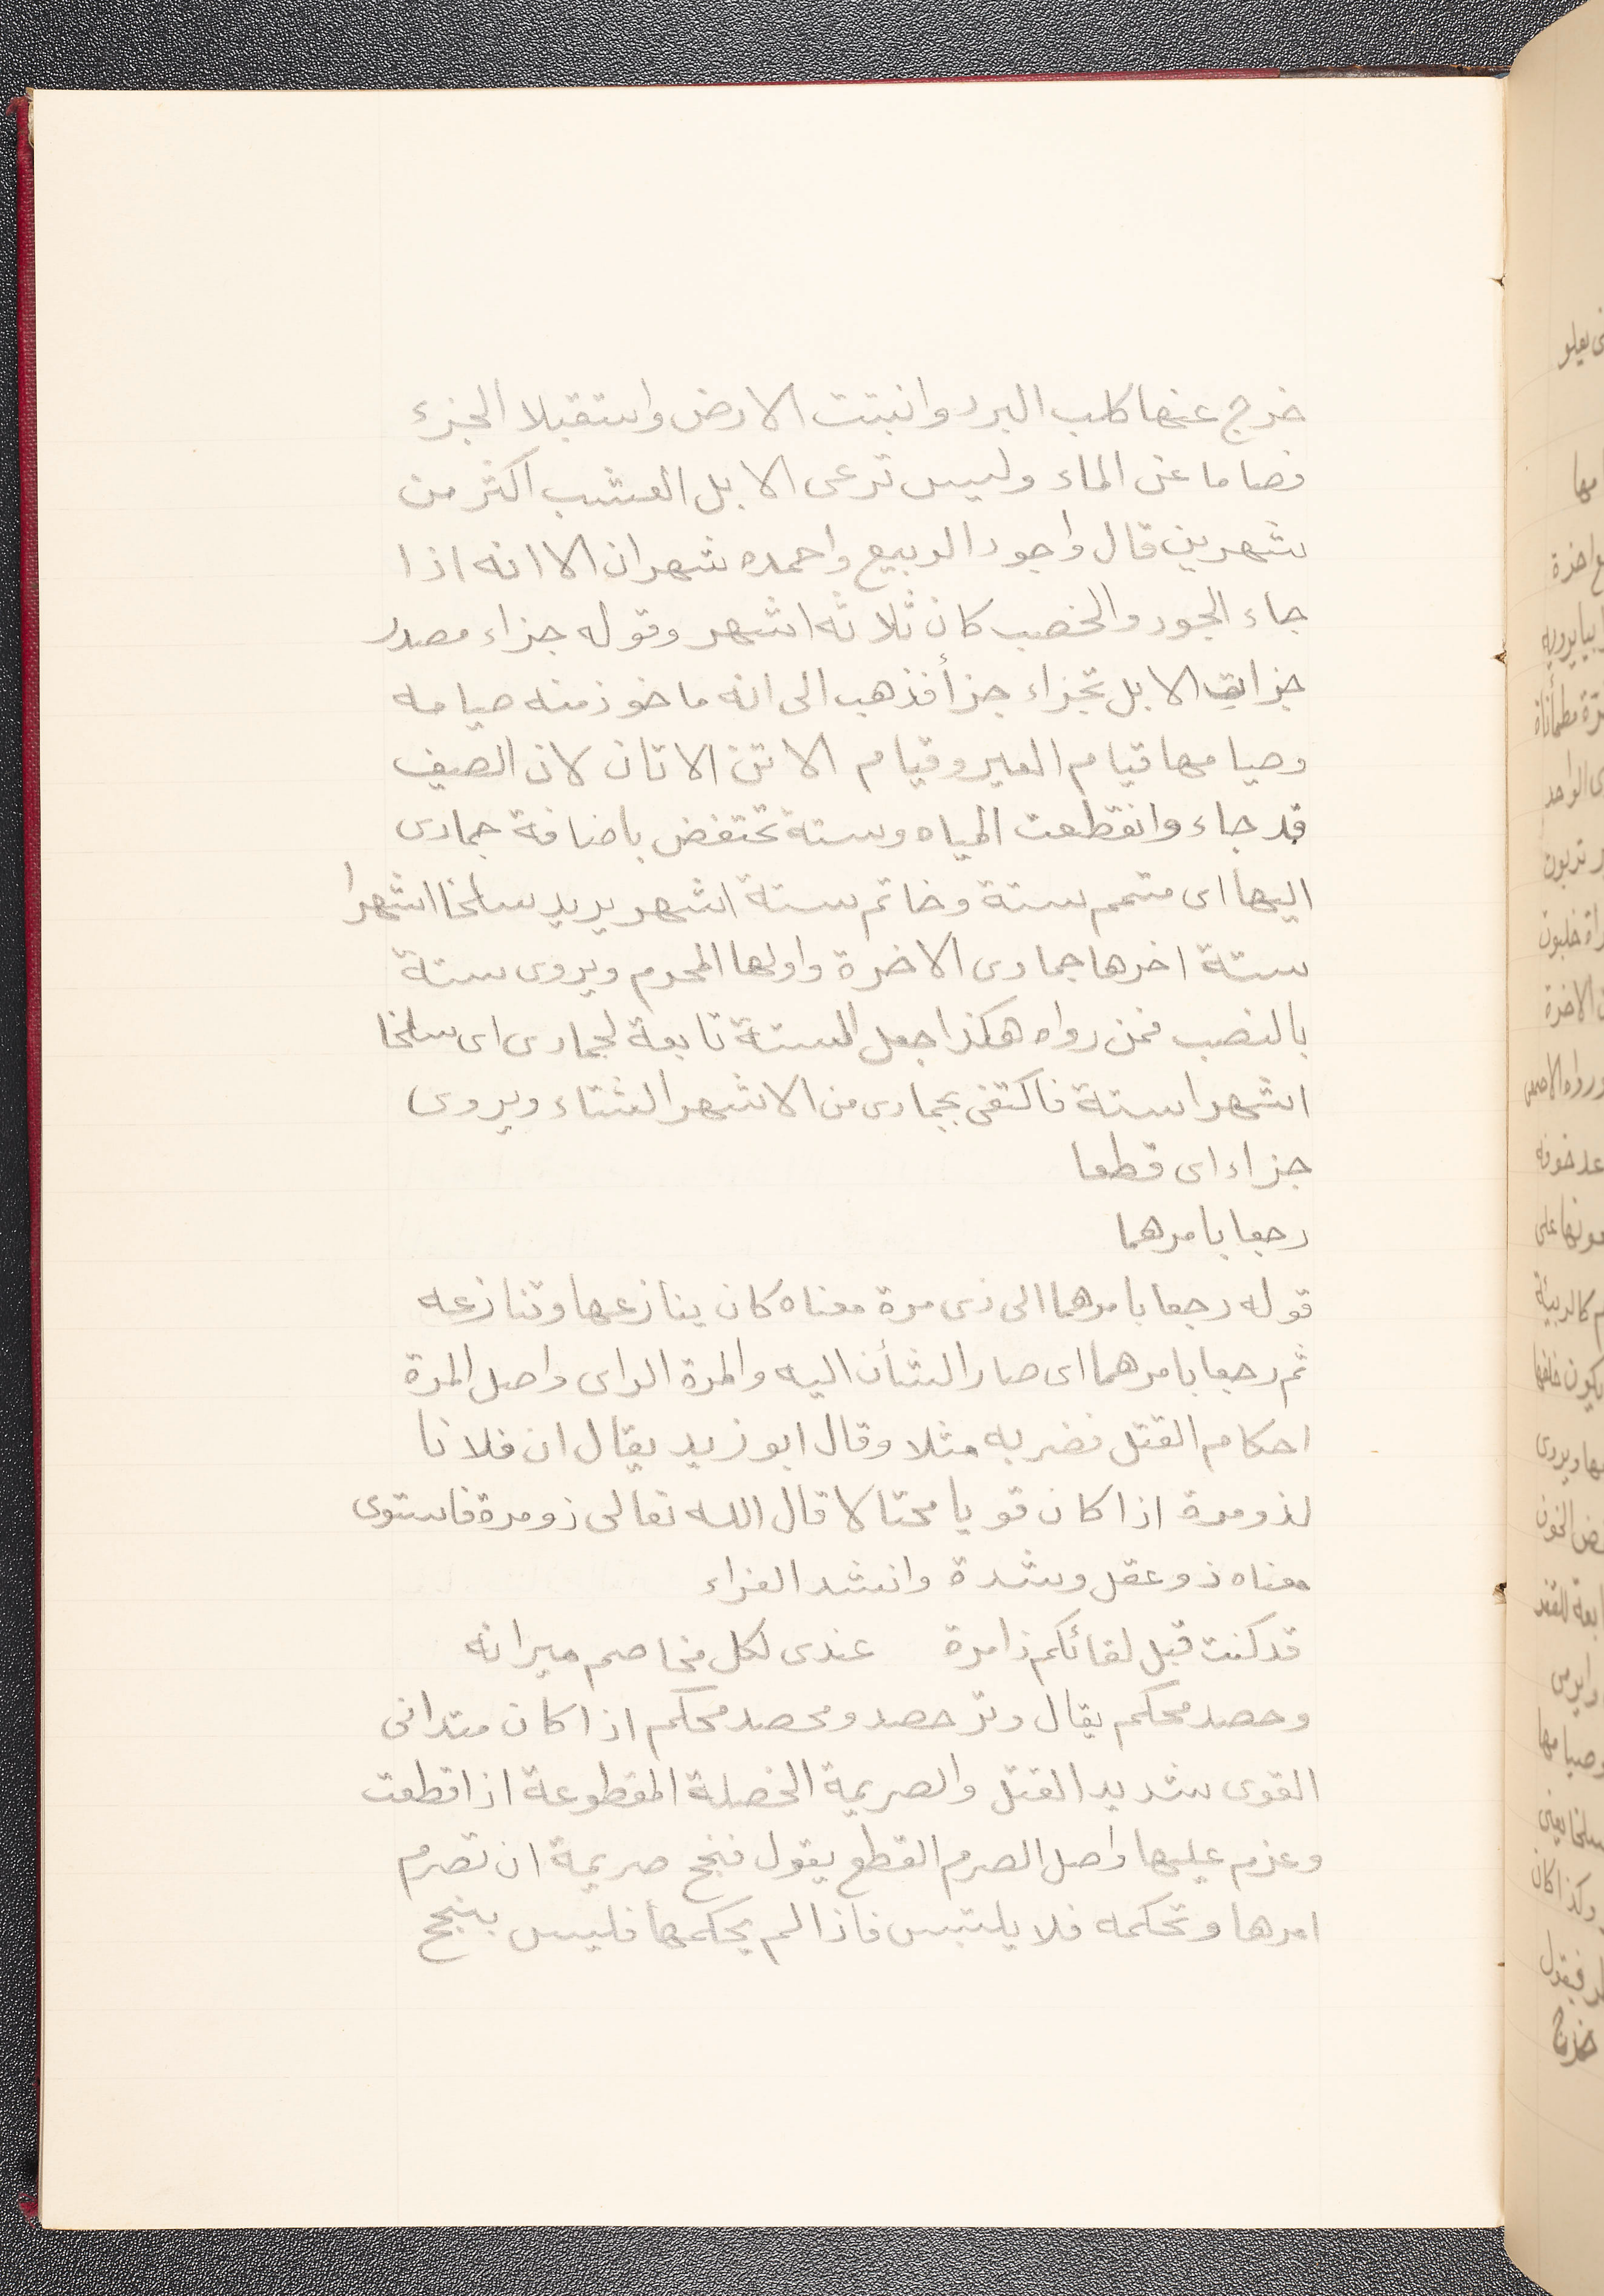 خرج عنها كلب البرد وانبتت الارض واستقبلا الجزء
فصاما عن الماء وليس ترعى الابل العشب اكثر من
شهرين قال واجود الربيع واحمده شهران الا انه اذا
جاء الجود والخصب كان ثلاثه اشهر وقوله جزاء مصدر
جزات الابل تجزاء جزأ فذهب الى انه ماخوذ منه صيامه
وصيامها قيام العير وقيام الاتن الاتان لان الصيف
قد جاء وانقطعت المياه وستة تختفض باضافة جمادى
اليها اى متمم ستة وخاتم ستة اشهر يريد سلخا اشهرا
ستة اخرها جمادى الاخرة واولها المحرم ويروى ستة
بالنصب فمن رواه هكذا جعل الستة تابعة لجمادى اى سلخا
اشهرا ستة فاكتفى بجمادى من الاشهر الشتاء ويروى
جزاء اى قطعا
رجعا بامرهما
قوله رجعا بامرهما الى ذى مرة معناه كان ينازعها وتنازعه
ثم رجعا بامرهما اى صار الشأن اليه والمرة الراى واصل المرة
احكام الفتل فضربه مثلا وقال ابو زيد يقال ان فلانا
لذو مرة اذا كان قويا محتالا قال الله تعالى ذو مرة فاستوى
معناه ذو عقل وشدة وانشد الفراء
قد كنت قبل لقائكم ذا مرة عندى لكل مخاصم ميزانه
وحصد محكم يقال وتر حصد ومحصد محكم اذا كان متدانى
القوى شديد الفتل والصريمة الخصلة المقطوعة اذا قطعت
وعزم عليها واصل الصرم القطع يقول فنجح صريمة ان تصرم
امرها وتحكمه فلا يلتبس فاذا لم يحكمها فليس بنجح